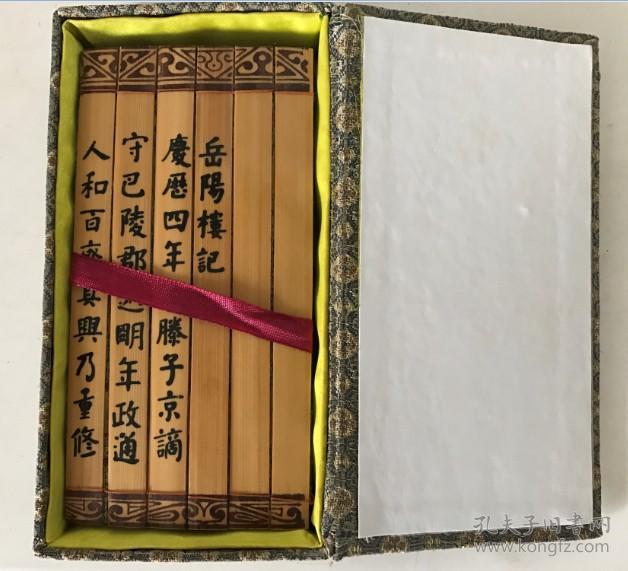 岳陽樓記
慶歷四年滕子京謫
守巴陵郡明年政通
人和百廢具興乃重修
孔夫子旧书网
www.kongfz.com